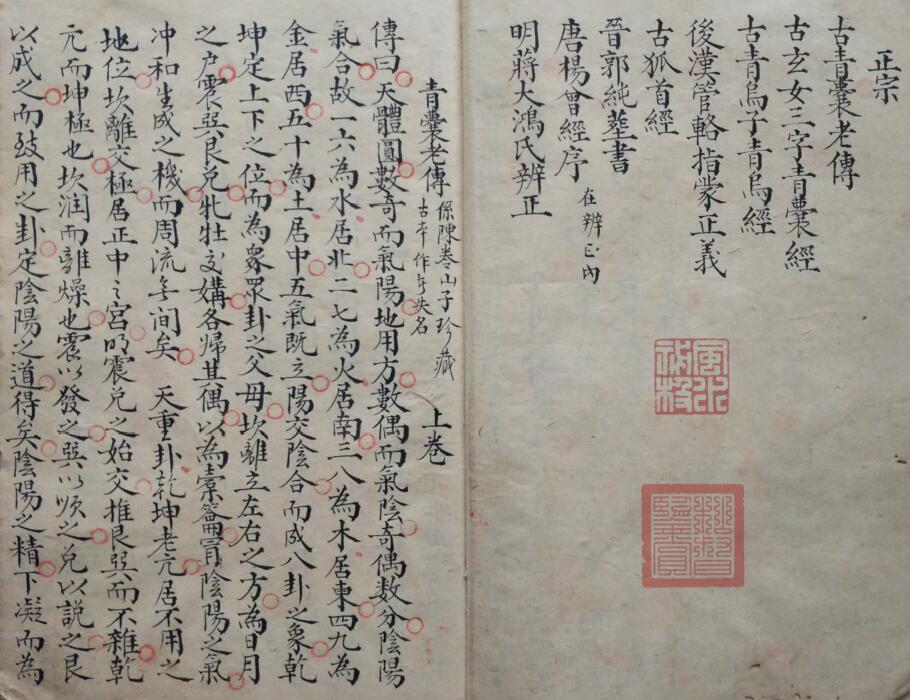 正宗
古青囊老傳
古玄女三字青囊經
古青烏子青烏經
後漢管輅指蒙正義
古狐首經
晉郭純塟書
唐楊曾經序 在辨正內
明蔣大鴻氏辨正
青囊老傳 係陳巻山子珍藏 上巻
古本作者失名
傳曰天體圓數奇而氣陽地用方數偶而氣陰奇偶數分陰陽
氣合故一六為水居北二七為火居南三八為木居東四九為
金居西五十為土居中五氣既立陽交陰合而成八卦之象乾
坤定上下之位而為眾眾卦之父母坎離立左右之方為日月
之戶震巽艮兌牝牡交媾各歸其偶以為橐籥冐陰陽之氣
冲和生成之機而周流無间矣 天重卦乾坤老亢居不用之
地位坎離交極居正中之宮以震兌之始交推艮巽而不雜乾
元而坤極也坎润而離燥也震以發之巽以順之兌以説之艮
以成之而致用之卦定陰陽之道得矣陰陽之精下凝而為